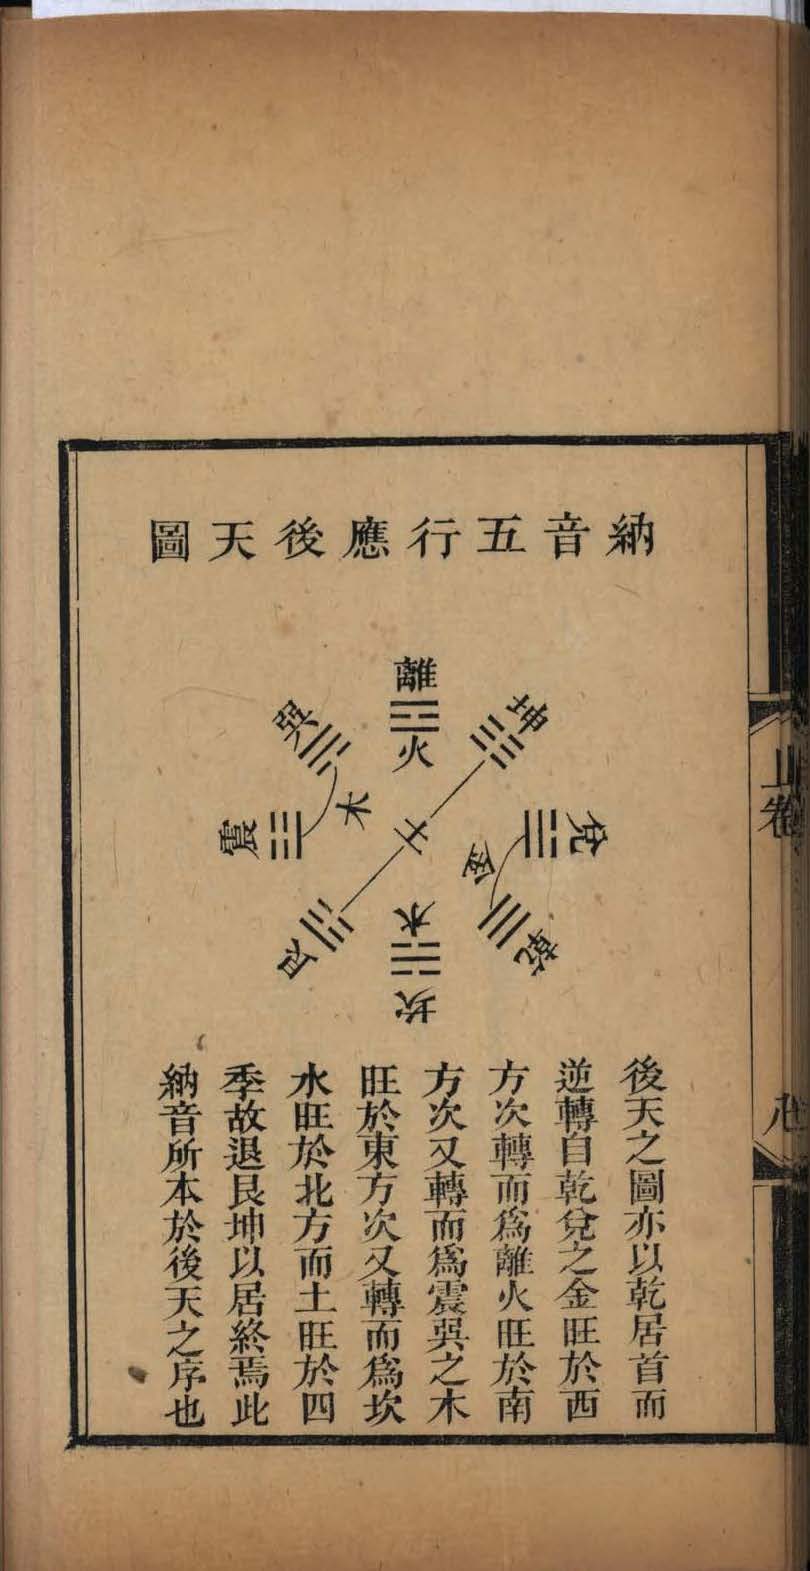 納音五行應後天圖
離
火
坤
兌
金
乾
水
坎
艮
震
木
巽
土
後天之圖亦以乾居首而
逆轉自乾兌之金旺於西
方次轉而爲離火旺於南
方次又轉而爲震巽之木
旺於東方次又轉而爲坎
水旺於北方而土旺於四
季故退艮坤以居終焉此
納音所本於後天之序也
卷